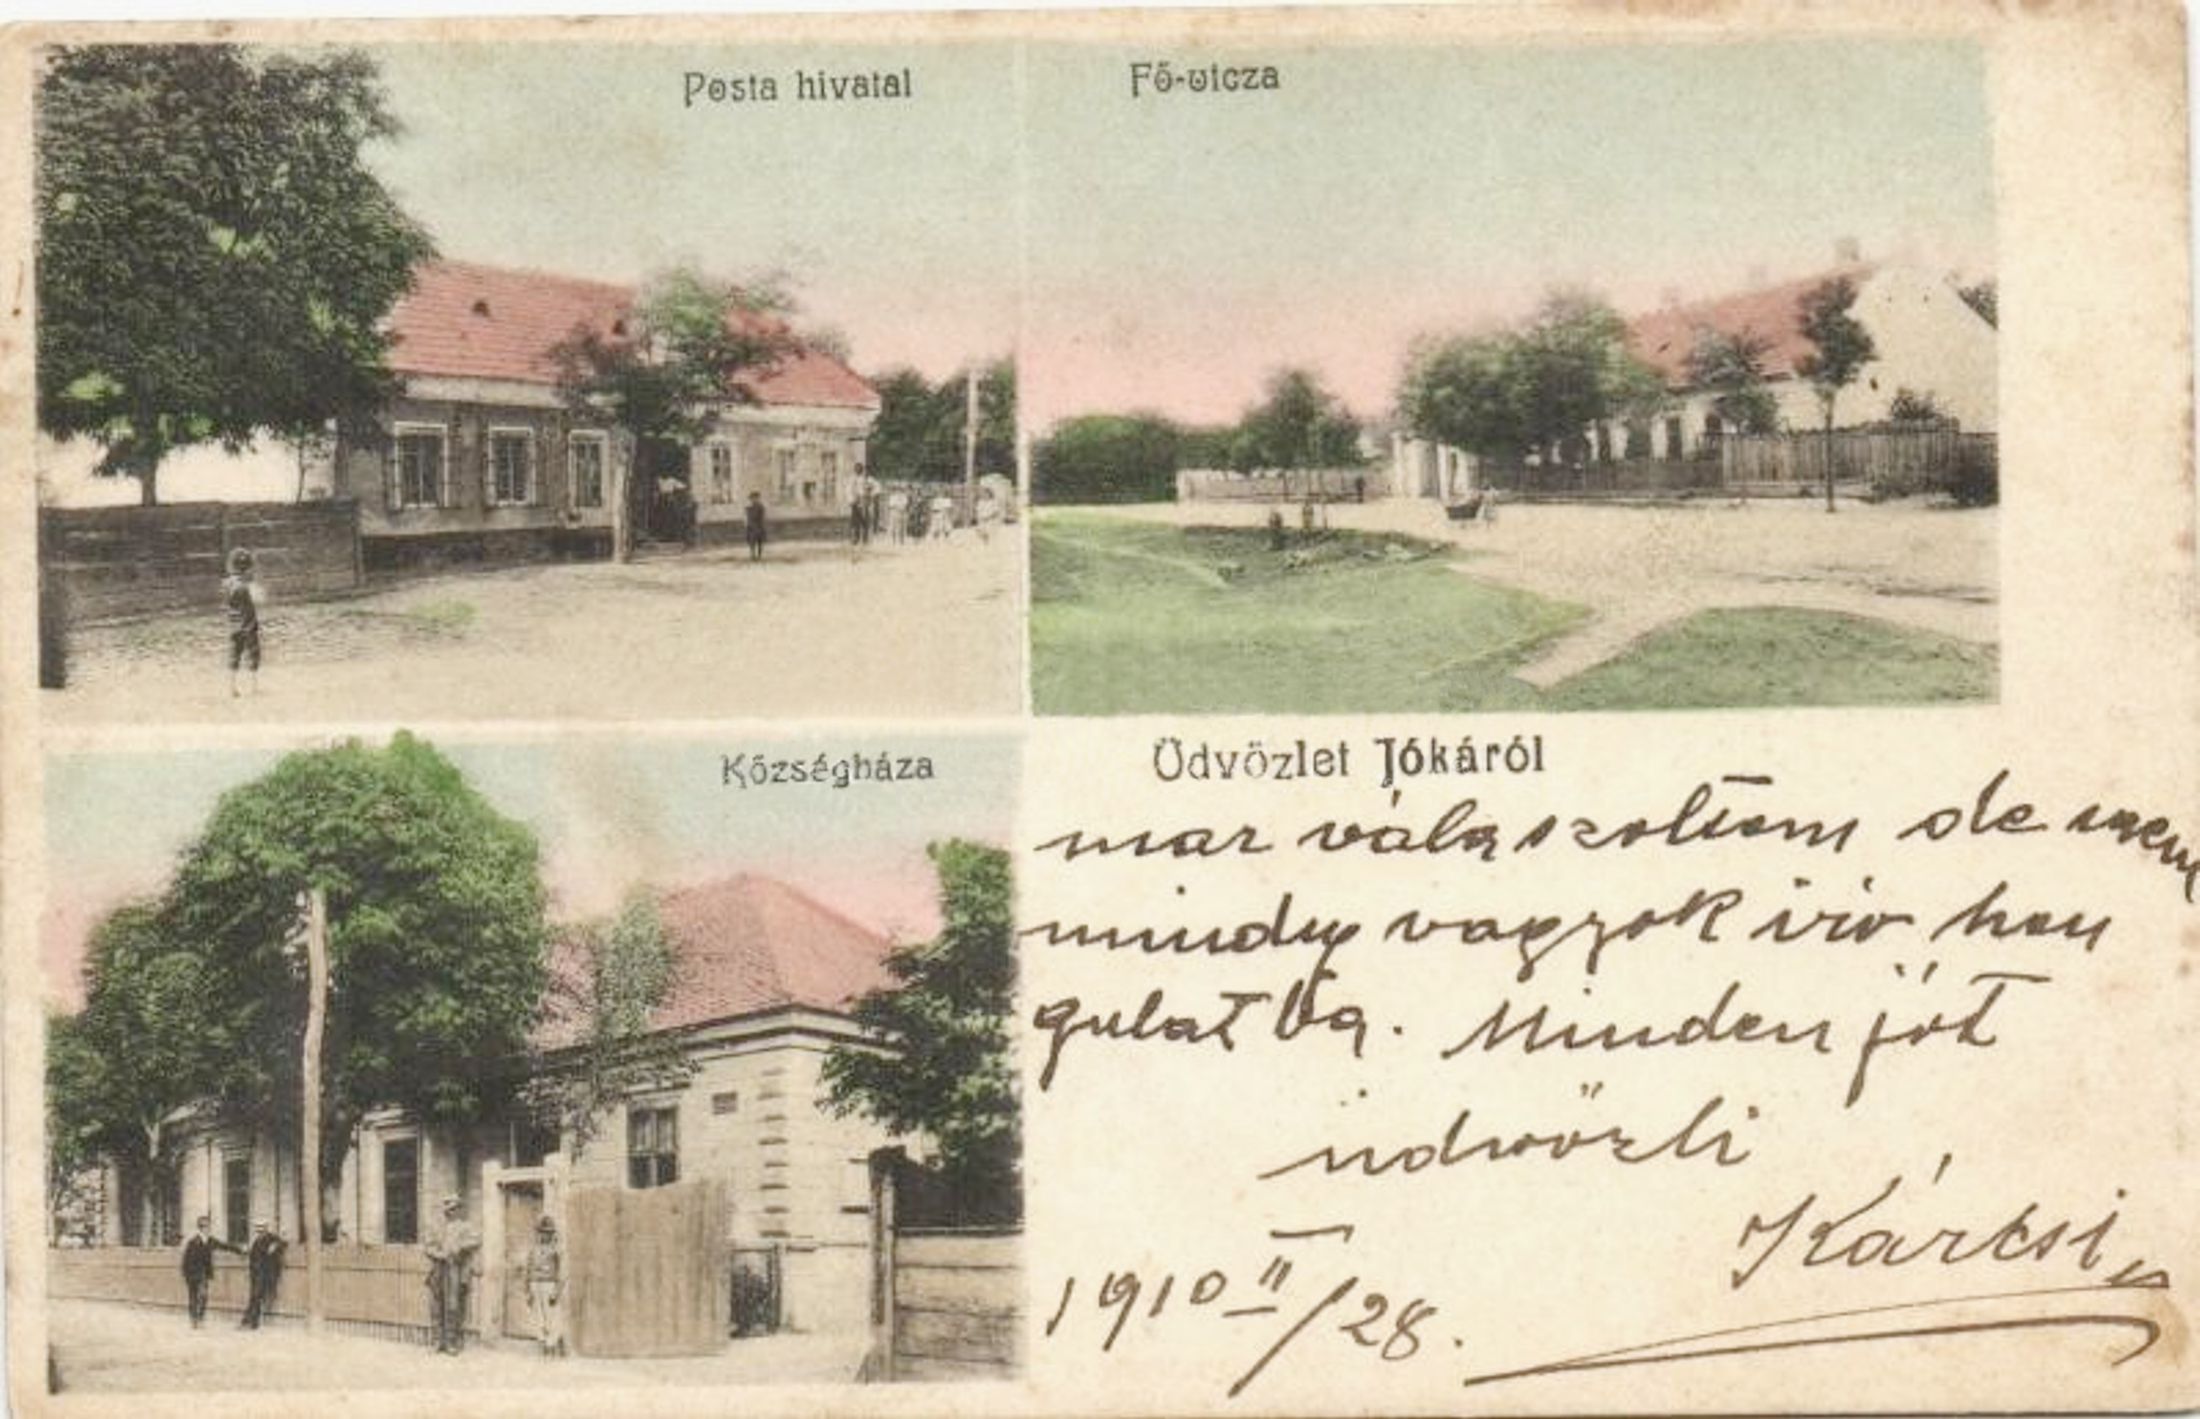 Posta hivatal
Fő-utcza
Községháza
Üdvözlet Jókáról
mar válaszoltam de nem
mindig vagyok iró han
gulatba. Minden jót
üdvözli
Kárcsi
1910 II/28.